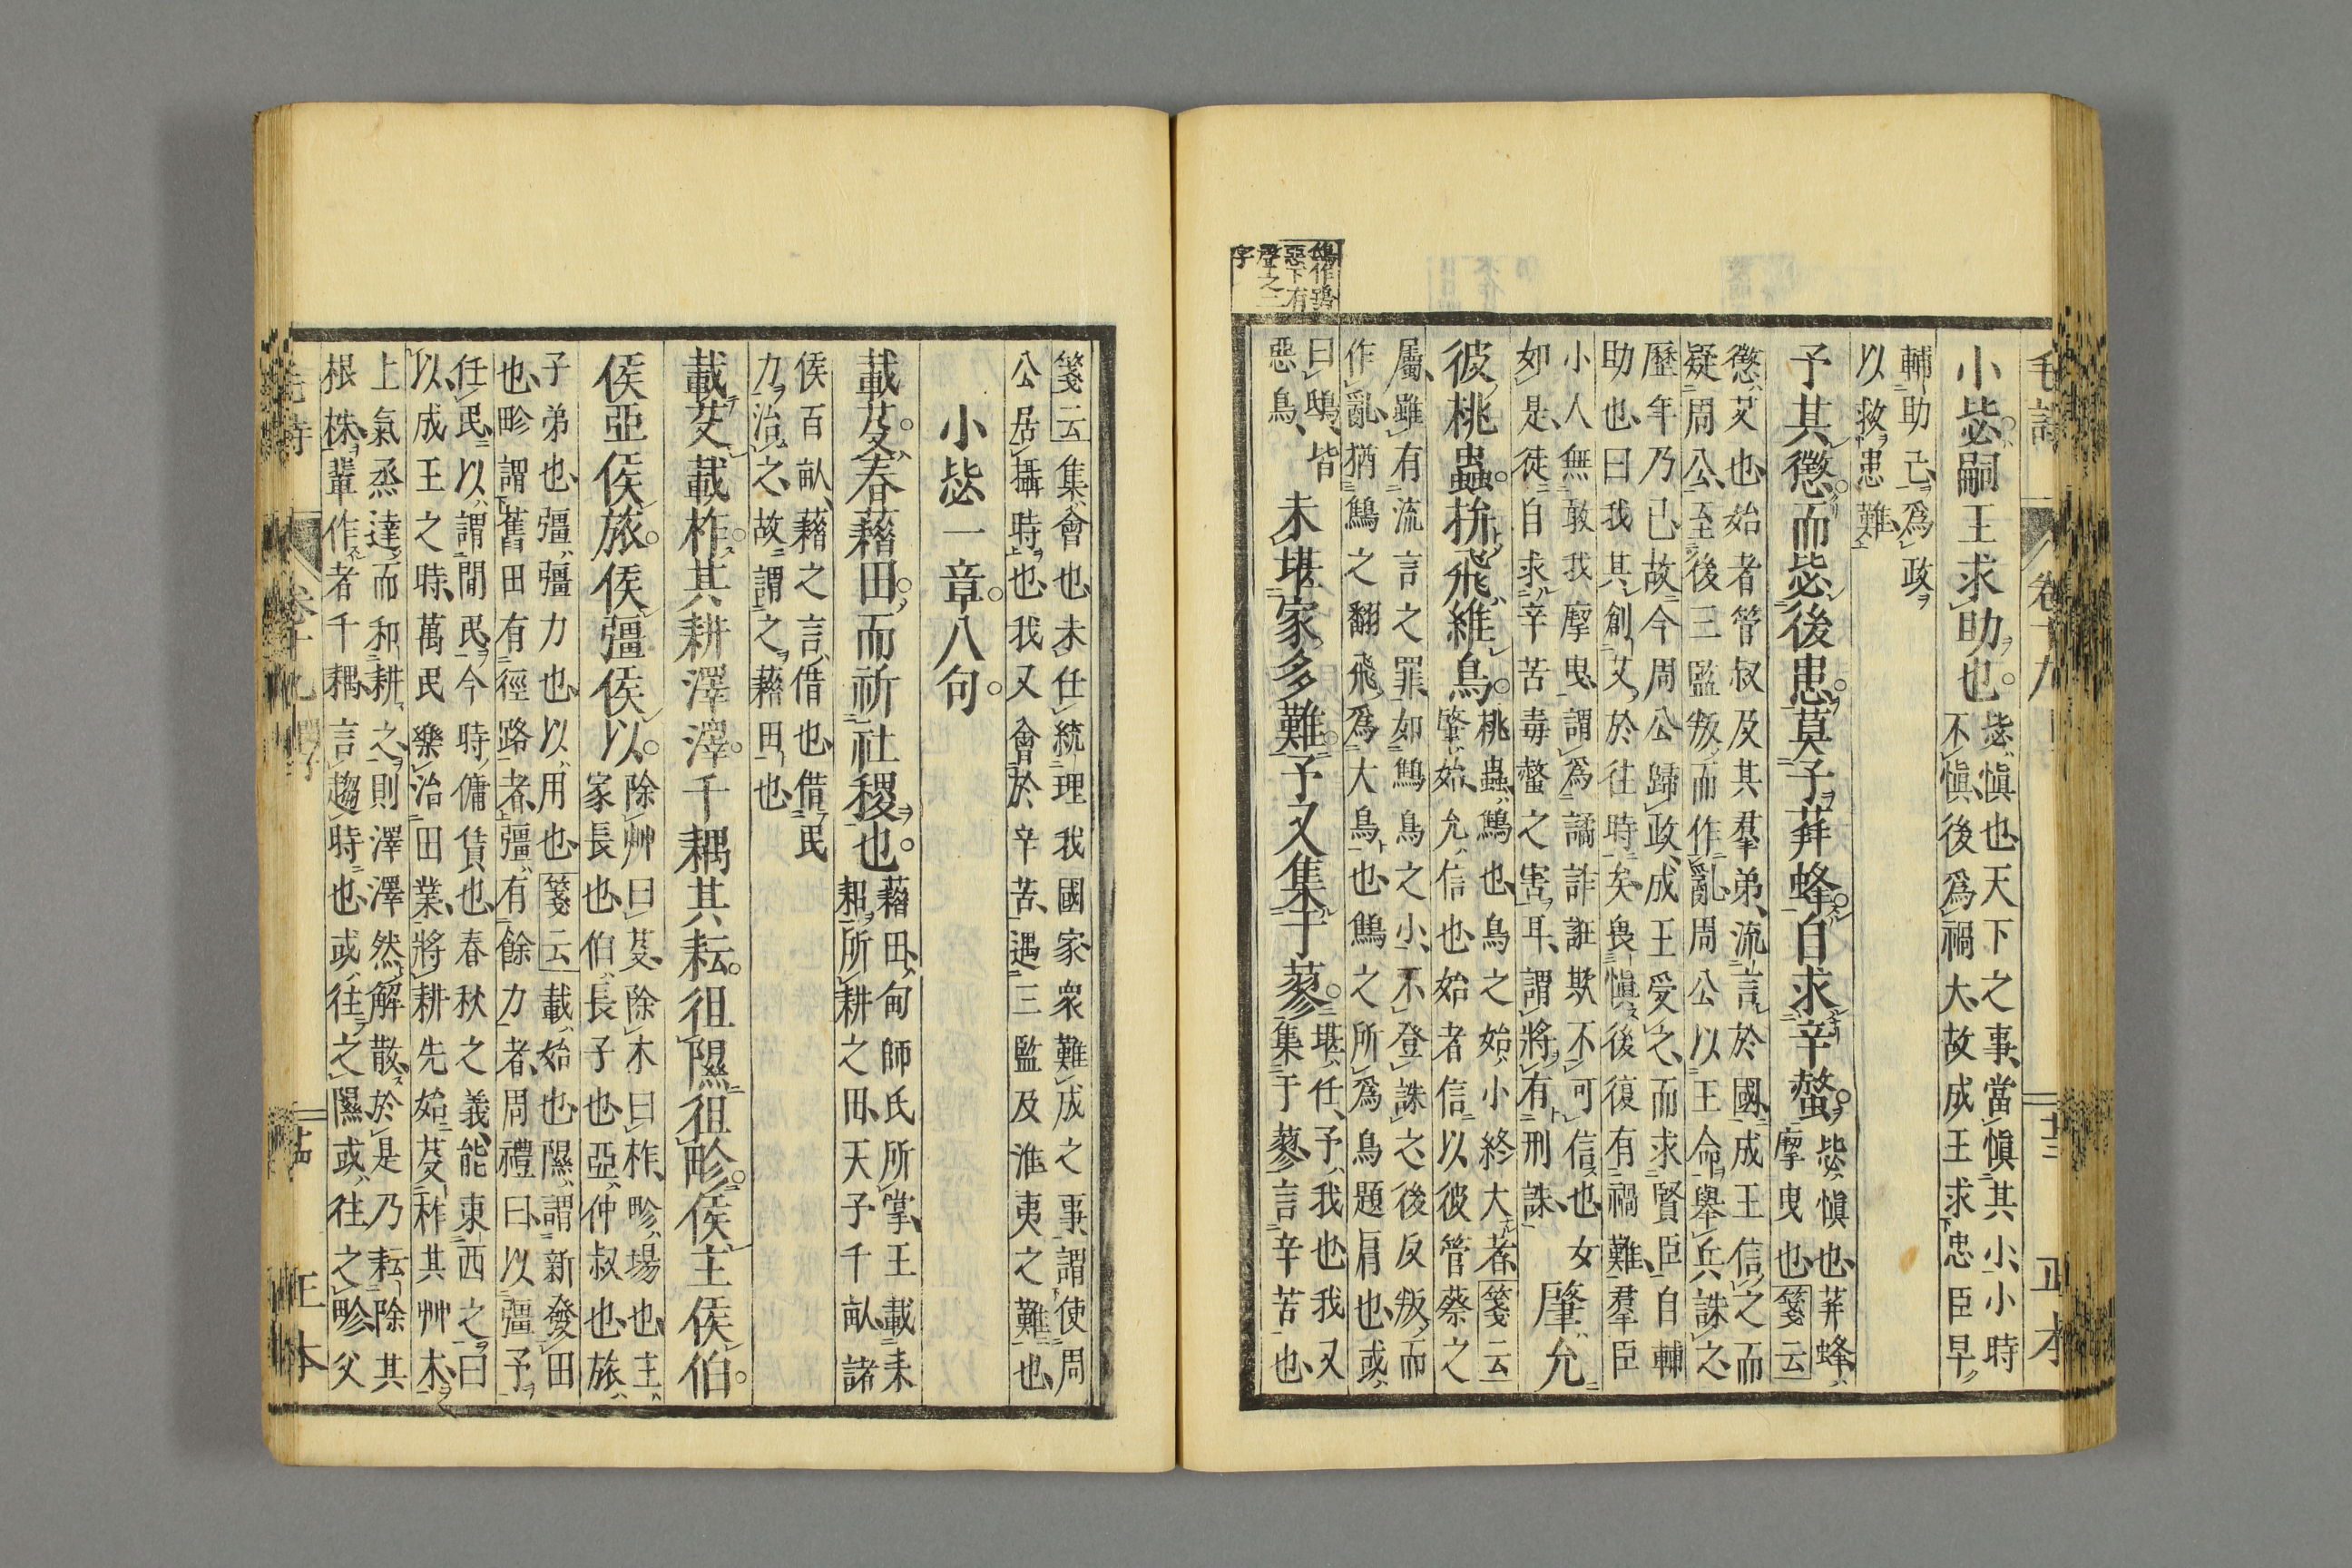 毛詩 卷十九 十三 正本
小毖嗣王求助也。毖愼也天下之事當愼其小小時
不愼後爲禍大故成王求忠臣早
輔助己爲政
以救患難
予其懲而毖後患。莫予荓蜂。自求辛螫。毖愼也荓蜂
摩曳也箋云
懲艾也始者管叔及其羣弟流言於國成王信之而
疑周公至後三監叛而作亂周公以王命舉兵誅之
歷年乃已故今周公歸政成王受之而求賢臣自輔
助也曰我其創艾於往時矣畏愼後復有禍難羣臣
小人無敢我摩曳謂爲譎詐誑欺不可信也女
如是徒自求辛苦毒螫之害耳謂將有刑誅
肇允
彼桃蟲。拚飛維鳥。桃蟲鷦也鳥之始小終大者箋云
肇始允信也始者信以彼管蔡之
屬雖有流言之罪如鷦鳥之小不登誅之後反叛而
作亂猶鷦之翻飛爲大鳥也鷦之所爲鳥題肩也或
曰鴟皆
惡鳥
未堪家多難。予又集于蓼。堪任予我也我又
集于蓼言辛苦也
鴟作鴞
惡下有
聲之二
字
箋云集會也未任統理我國家衆難成之事謂使周
公居攝時也我又會於辛苦遇三監及淮夷之難也
小毖一章。八句。
載芟。春藉田。而祈社稷也。藉田甸師氏所掌王載耒
耜所耕之田天子千畝諸
侯百畝藉之言借也借民
力治之故謂之藉田也
載芟載柞。其耕澤澤。千耦其耘。徂隰徂畛。侯主侯伯。
侯亞侯旅。侯彊侯以。除艸曰芟除木曰柞畛場也主
家長也伯長子也亞仲叔也旅
子弟也彊彊力也以用也箋云載始也隰謂新發田
也畛謂舊田有徑路者彊有餘力者周禮曰以彊予
任民以謂閒民今時傭賃也春秋之義能東西之曰
以成王之時萬民樂治田業將耕先始芟柞其艸木
上氣烝達而和耕之則澤澤然解散於是乃耘除其
根株輩作者千耦言趨時也或往之隰或往之畛父
毛詩 卷十九 十四 正本